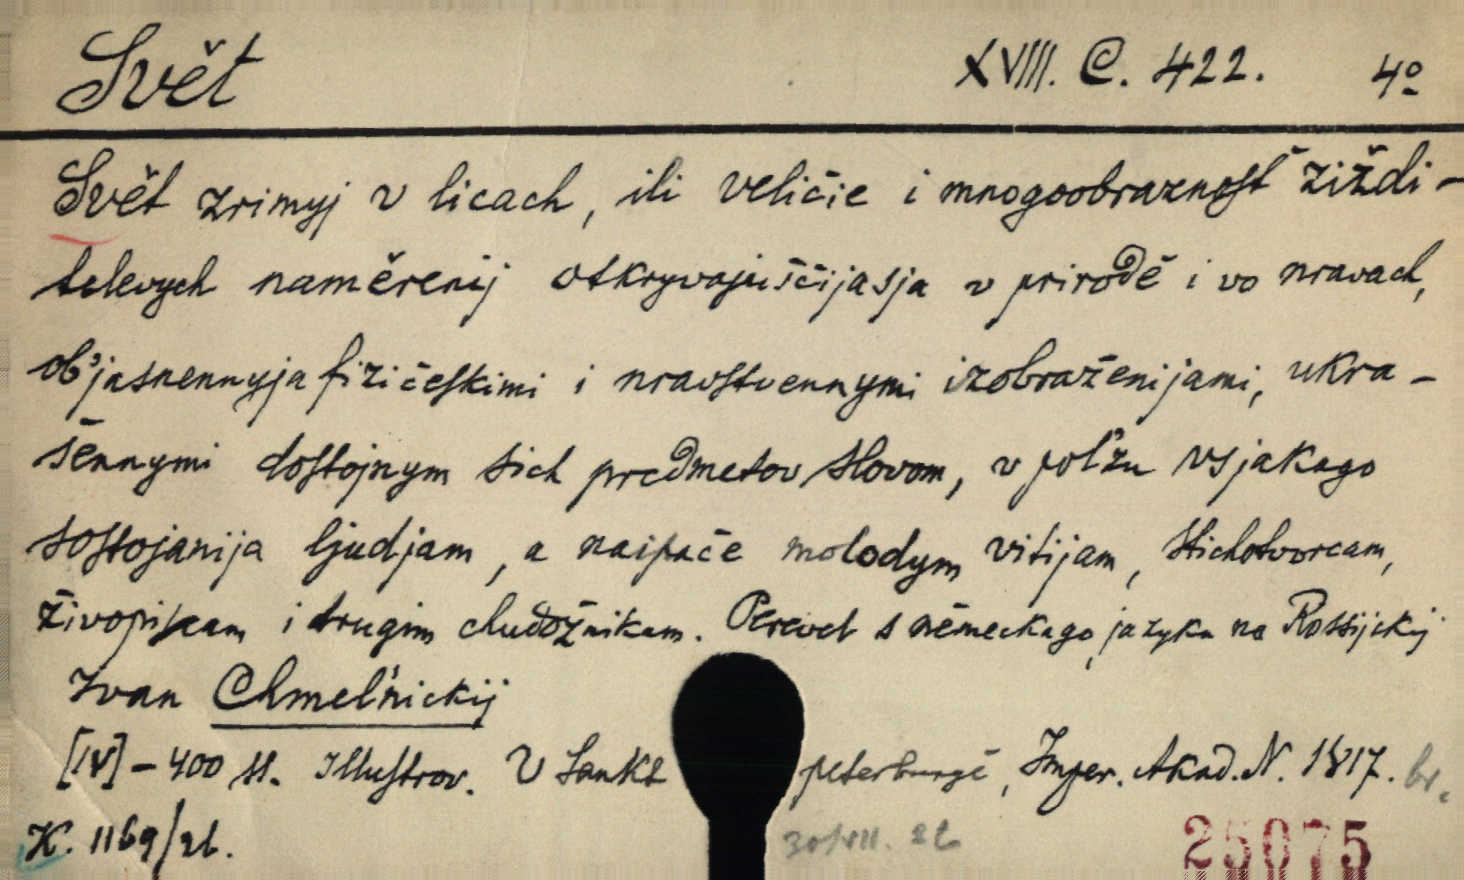 Svět XVIII. C. 422. 4º
Svět zrimyj v licach, ili veličie i mnogoobraznost' žiždi-
televych naměrenij otkryvajuščijasja v prirodě i vo nravach,
ob'jasnennyja fizičeskimi i nravstvennymi izobraženijami, ukra-
šennymi dostojnym sich predmetov slovom, v pol'zu vsjakago
sostojanija ljudjam, a naipače molodym vitijam, stichotvorcam,
živopiscam i drugim chudožnikam. Perevel s německago jazyka na Rossijskij
Ivan Chmel'nickij
[IV] - 400 ss. Illustrov. V Sankt peterburgě, Imper. Akad. N. 1817. br.
K. 1169/26.
30/VII. 26
25075